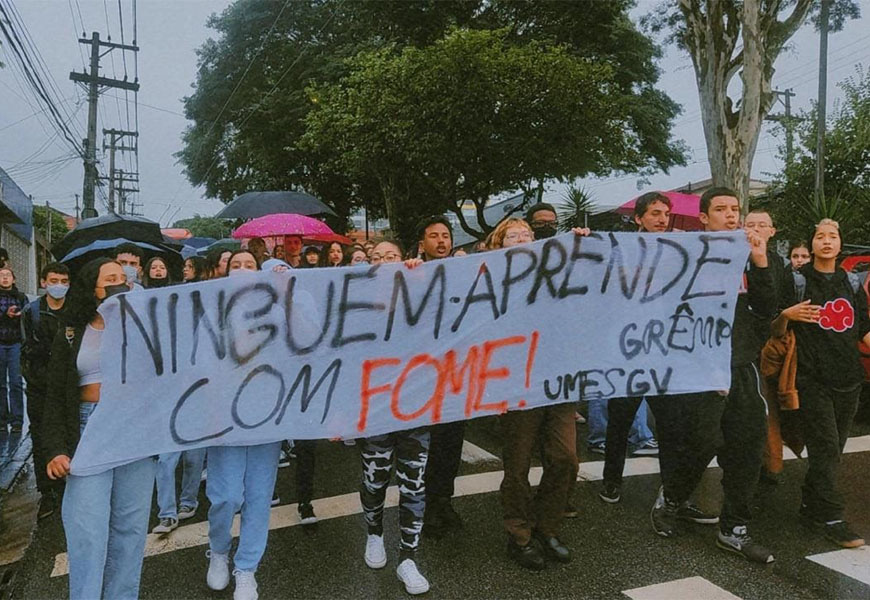 NINGUÉM·APRENDE
COM FOME!
GRÊMIO
UMESGV